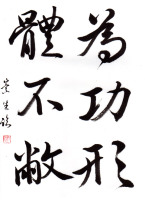 為功形
體不敝